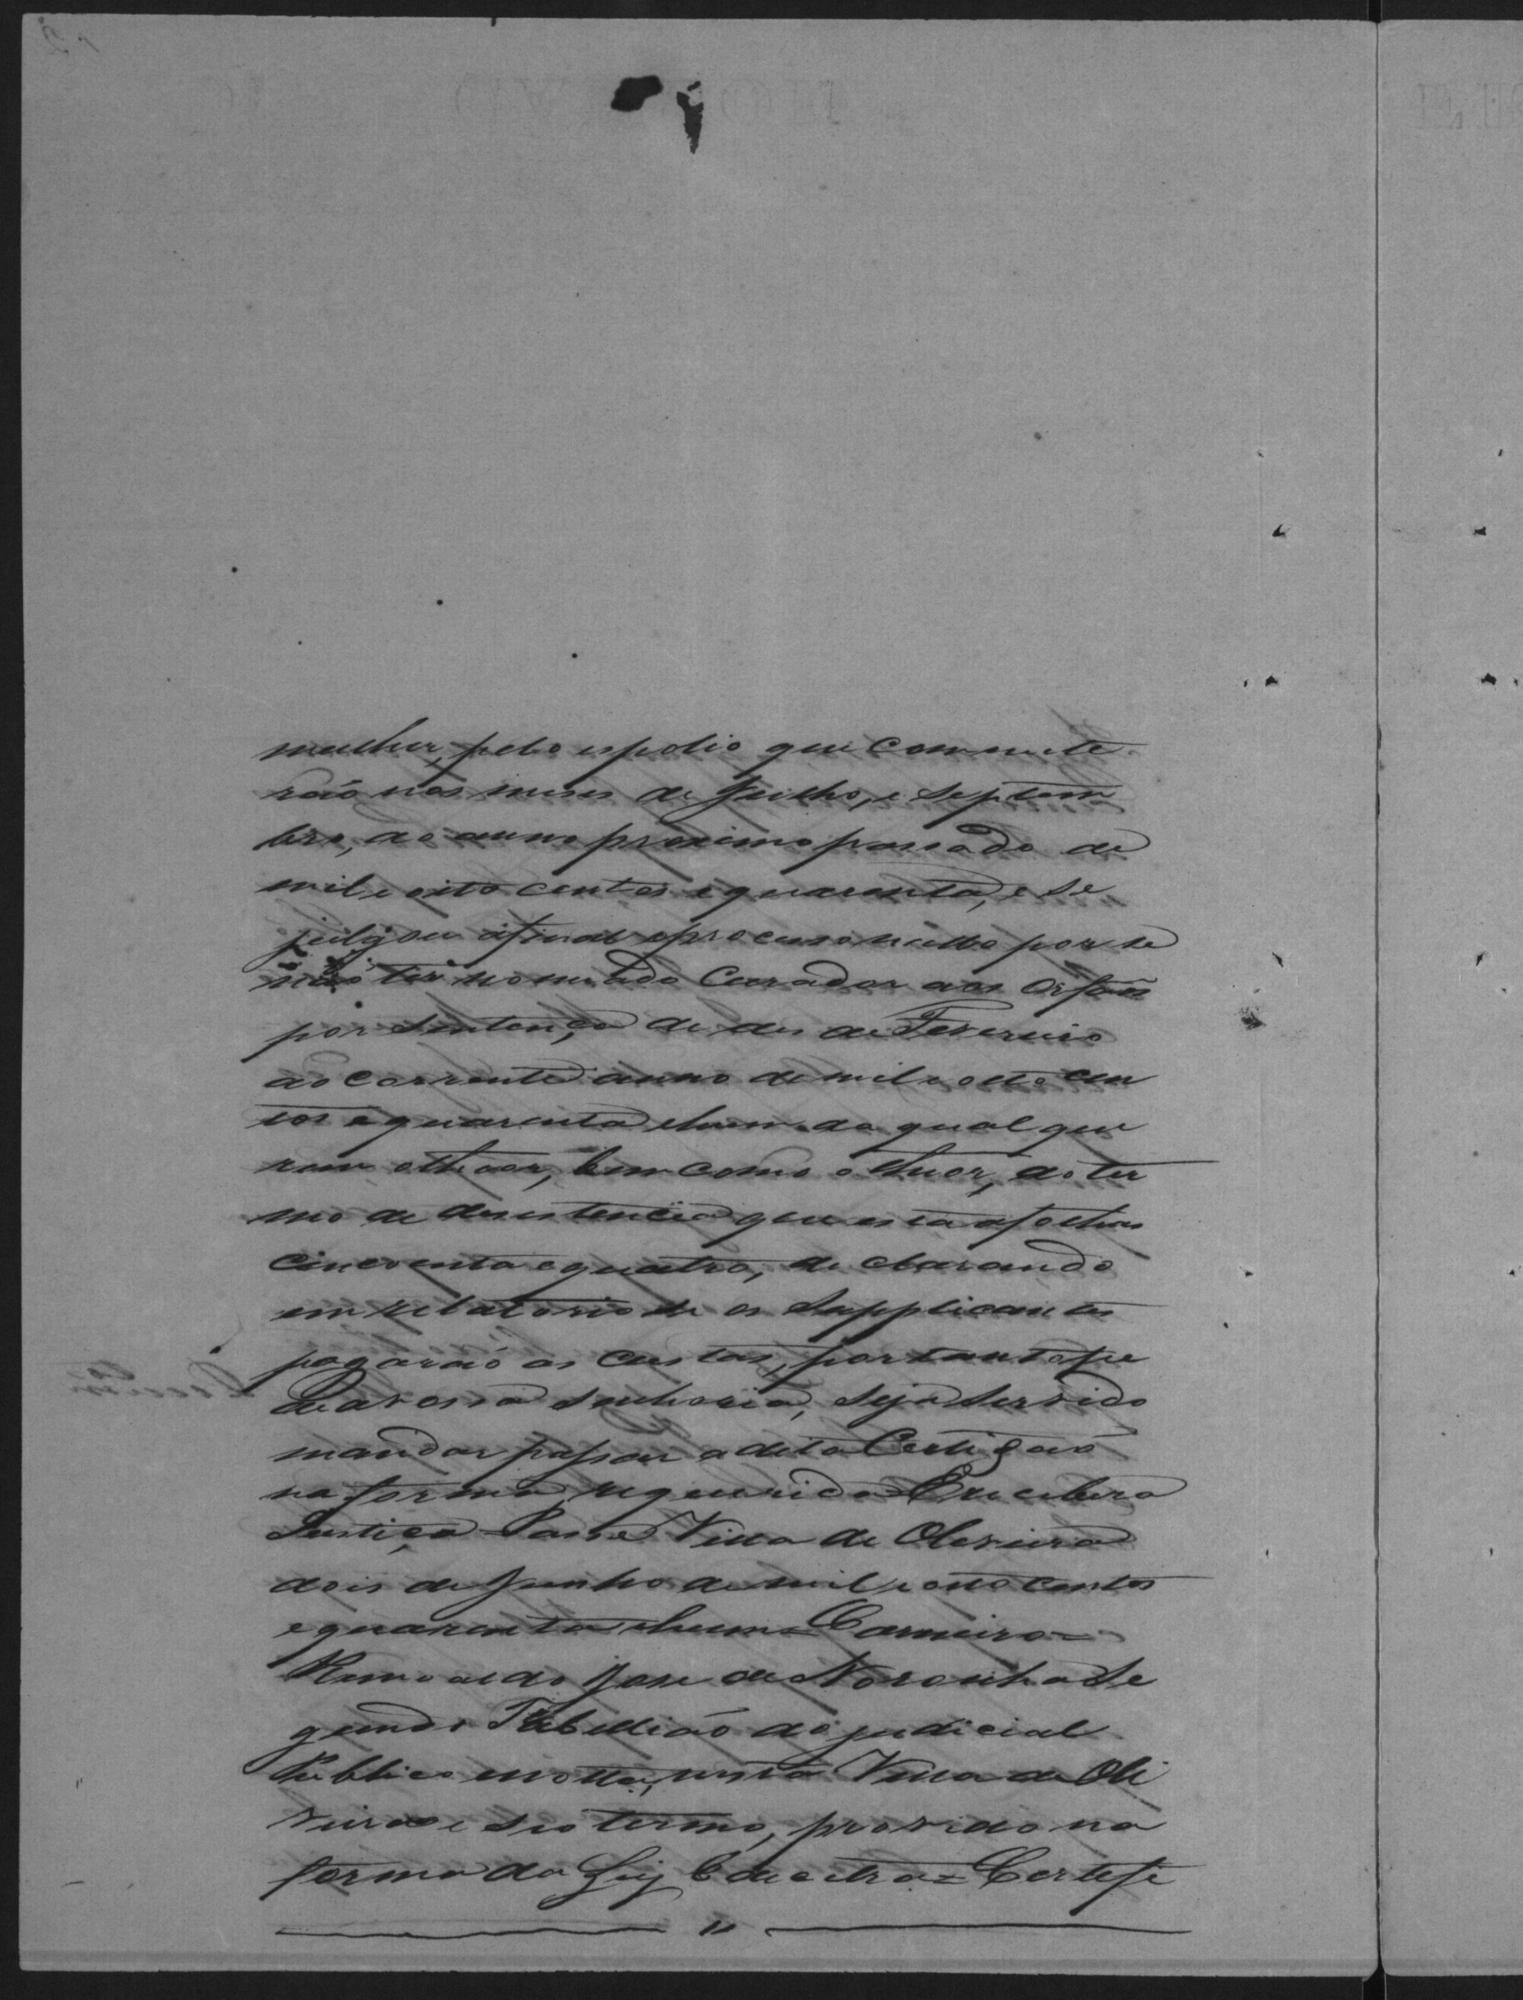 mulher, pelo espolio que commete
rão nos meses de Julho, e Septem
bro, do anno proximo passado de
mil e oito centos e quarenta, e se
julgou afinal o processo nullo por se
não ter nomeado Curador aos Orfãos
por sentença de des de Fevereiro
do corrente anno de mil e oito cen
tos e quarenta e hum da qual que
rem o theor, bem como o theor, do ter
mo de desistencia que está afolhas
cincoenta e quatro, declarando
em relatorio se os Supplicantes
pagarão as custas, portanto pe
de a vossa senhoria, seja servido
mandar passar a dita Certidão
na forma requerida E recebera
Justiça Passe Villa de Oliveira
dois de Junho de mil e oito centos
e quarenta e hum = Carneiro =
Romoaldo Jose de Noronha Se
gundo Tabellião do judicial
Publico e nottas, nesta Villa de Oli
veira e seo termo, provido na
forma da Ley Etcetra = Certefi